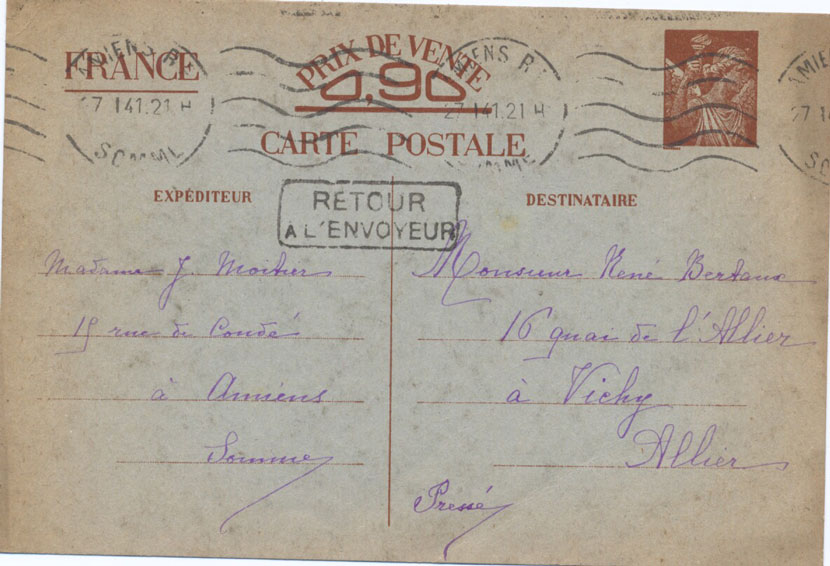 FRANCE
PRIX DE VENTE
0,90
CARTE POSTALE
AMIENS R.
27 I 41.21 H
SOMME
AMIENS R.
27 I 41.21 H
SOMME
AMIE
27 I
SO
EXPÉDITEUR
DESTINATAIRE
RETOUR
À L'ENVOYEUR
Madame J.
19 rue de Condé
à Amiens
Somme
Monsieur René Bertaux
16 quai de l'Allier
à Vichy
Allier
Pressé